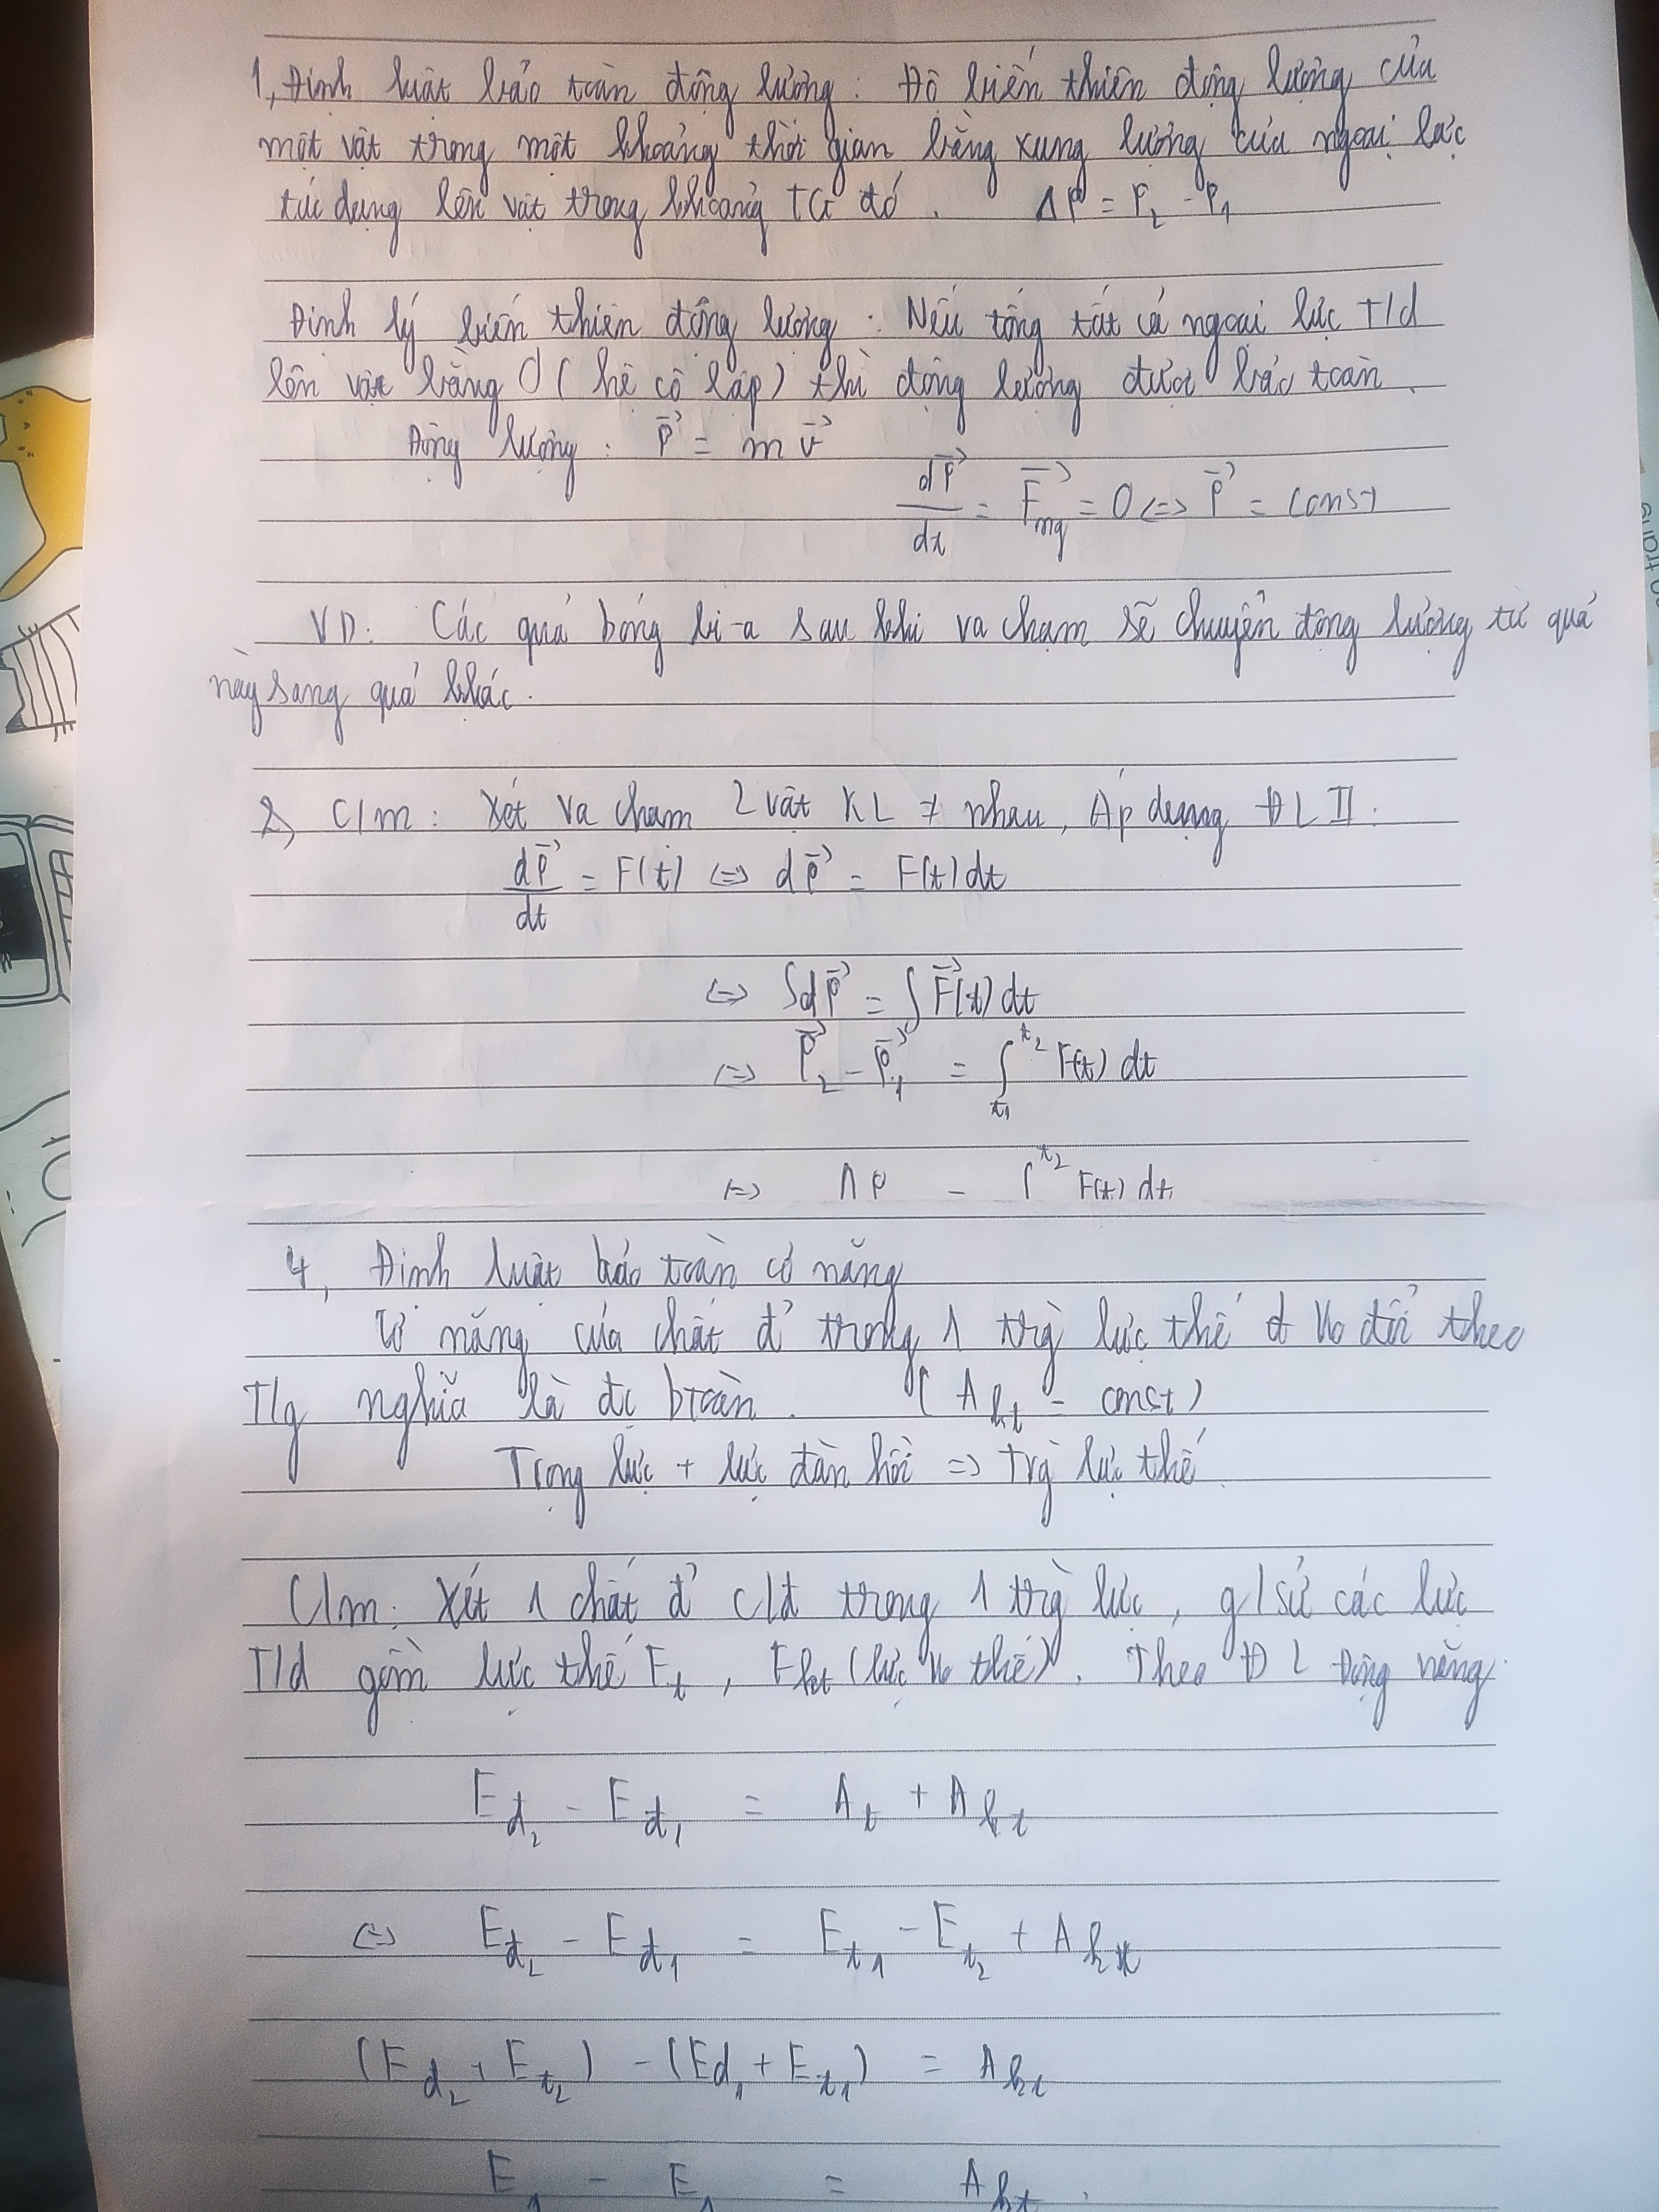 1, Định luật bảo toàn động lượng : Độ biến thiên động lượng của
một vật trong một khoảng thời gian bằng xung lượng của ngoại lực
tác dụng lên vật trong khoảng TG đó . Δp = P₂ - P₁
Định lý biến thiên động lượng : Nếu tổng tất cả ngoại lực T/d
lên vật bằng 0 ( hệ cô lập ) thì động lượng được bảo toàn .
Động lượng : p⃗ = m v⃗
dp⃗/dt = F⃗ng = 0 <=> p⃗ = const
VD: Các quả bóng bi-a sau khi va chạm sẽ chuyển động lượng từ quả
này sang quả khác .
2, C/m : Xét va chạm 2 vật KL ≠ nhau, Áp dụng ĐL II :
dp⃗/dt = F(t) <=> dp⃗ = F(t) dt
<=> ∫dp⃗ = ∫F⃗(t) dt
<=> P⃗₂ - P⃗₁ = ∫t₁^t₂ F(t) dt
<=> Δp = ∫^t₂ F(t) dt
4, Định luật bảo toàn cơ năng
Cơ năng của chất đ' trong 1 trg lực thế đ ko đổi theo
T/g nghĩa là đc btoàn . ( Akt = const )
Trọng lực + lực đàn hồi => trg lực thế
C/m: Xét 1 chất đ' c/đ trong 1 trg lực , g/sử các lực
T/d gồm lực thế Ft , Fkt (lực ko thế) . Theo ĐL Động năng :
Eđ₂ - Eđ₁ = At + Akt
<=> Eđ₂ - Eđ₁ = Et₁ - Et₂ + Akt
(Eđ₂ + Et₂) - (Eđ₁ + Et₁) = Akt